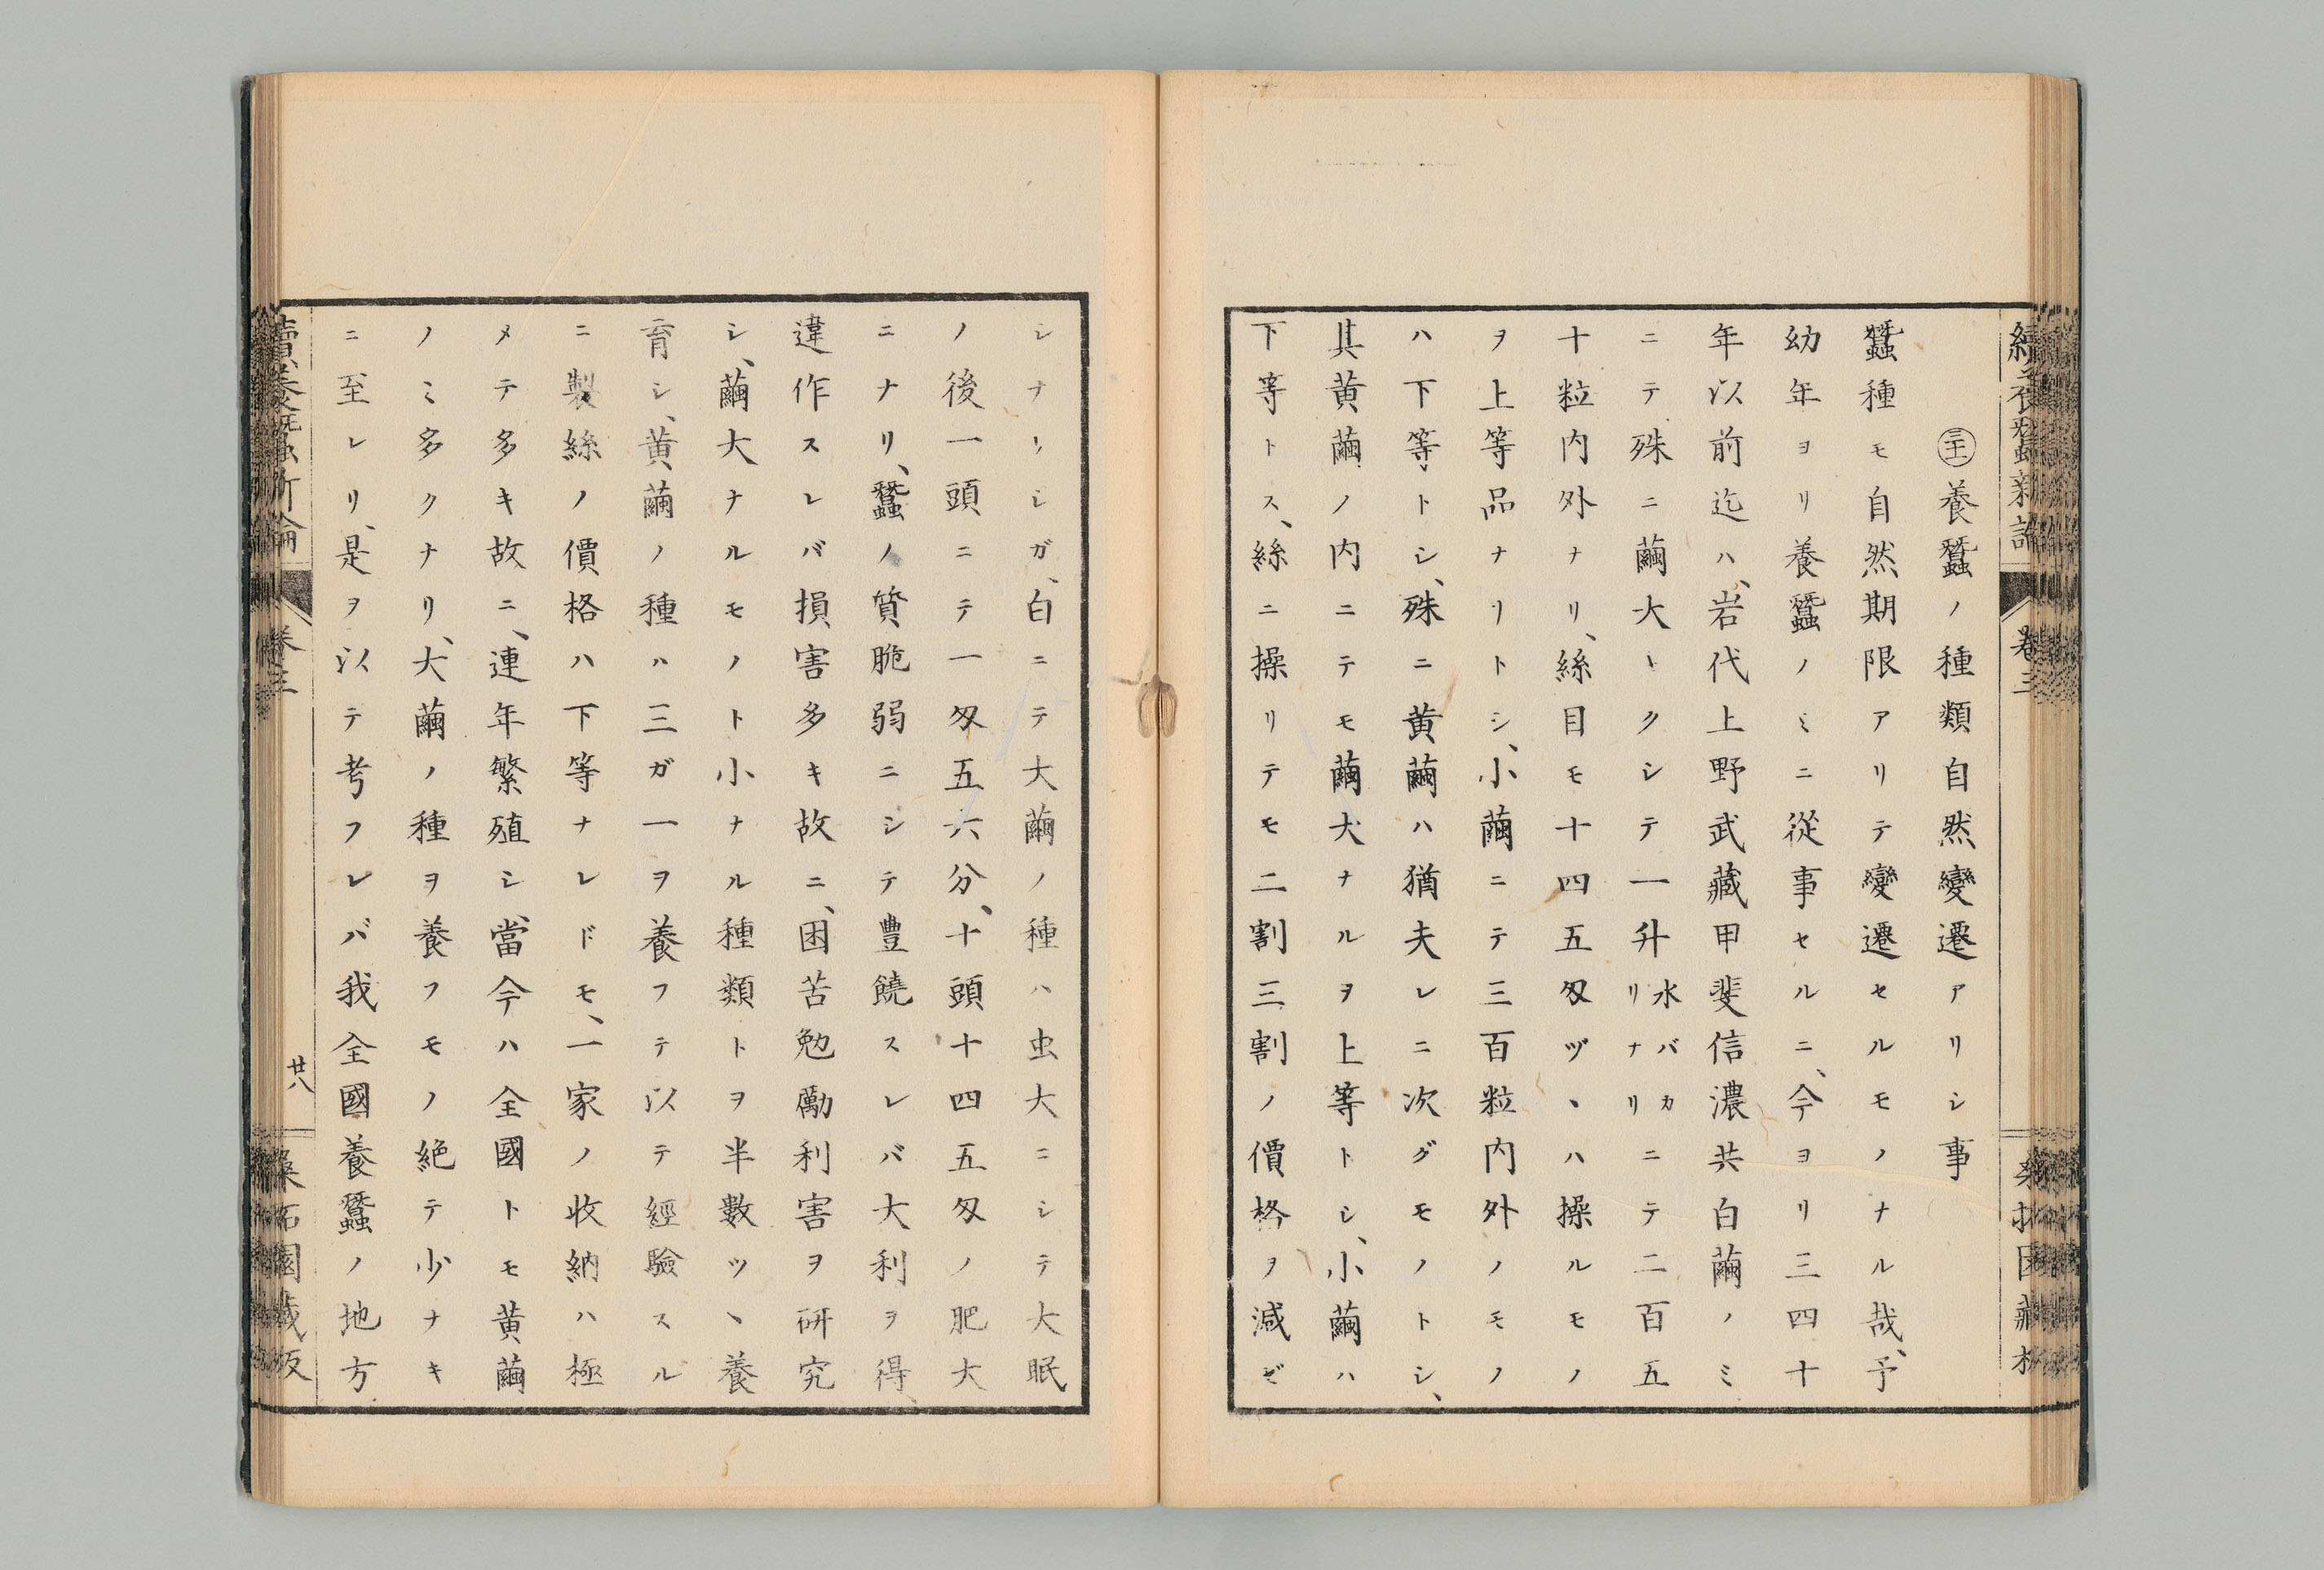 續養蠶新論
卷三
桑柘園藏板
㊂十 養蠶ノ種類自然變遷アリシ事
蠶種モ自然期限アリテ變遷セルモノナル哉、予
幼年ヨリ養蠶ノミニ從事セルニ、今ヨリ三四十
年以前迄ハ、岩代上野武藏甲斐信濃共白繭ノミ
ニテ殊ニ繭大トクシテ一升水バカリナリニテ二百五
十粒内外ナリ、絲目モ十四五匁ヅヽハ操ルモノ
ヲ上等品ナリトシ、小繭ニテ三百粒内外ノモノ
ハ下等トシ、殊ニ黄繭ハ猶夫レニ次グモノトシ、
其黄繭ノ内ニテモ繭大ナルヲ上等トシ、小繭ハ
下等トス、絲ニ操リテモ二割三割ノ價格ヲ減ゼ
シナリシガ、白ニテ大繭ノ種ハ虫大ニシテ大眠
ノ後一頭ニテ一匁五六分、十頭十四五匁ノ肥大
ニナリ、蠶ノ質脆弱ニシテ豊饒スレバ大利ヲ得、
違作スレバ損害多キ故ニ、困苦勉勵利害ヲ研究
シ、繭大ナルモノト小ナル種類トヲ半數ツヽ養
育シ、黄繭ノ種ハ三ガ一ヲ養フテ以テ經驗スル
ニ製絲ノ價格ハ下等ナレドモ、一家ノ收納ハ極
メテ多キ故ニ、連年繁殖シ、當今ハ全國トモ黄繭
ノミ多クナリ、大繭ノ種ヲ養フモノ絶テ少ナキ
ニ至レリ、是ヲ以テ考フレバ我全國養蠶ノ地方
續養蠶新論
卷三
廿八
桑柘園藏版